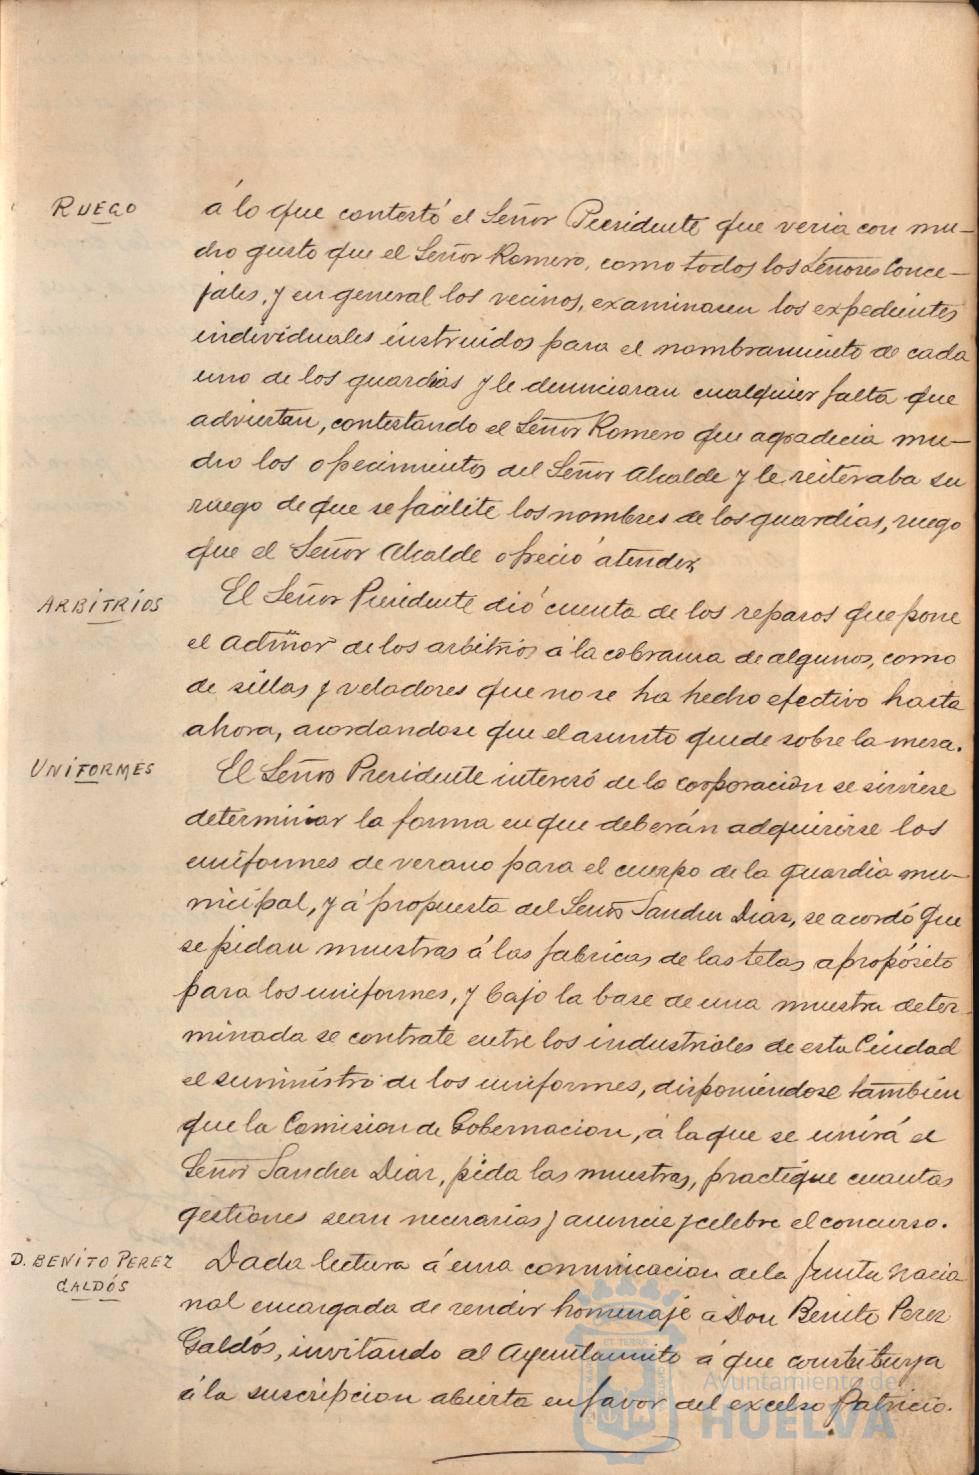 RUEGO
á lo que contestó el Señor Presidente que veria con mu-
cho gusto que el Señor Romero, como todos los Señores Conce-
jales, y en general los vecinos, examinasen los expedientes
individuales instruidos para el nombramiento de cada
uno de los guardias y le denunciaran cualquier falta que
adviertan, contestando el Señor Romero que agradecia mu-
cho los ofrecimientos del Señor Alcalde y le reiteraba su
ruego de que se facilite los nombres de los guardias, ruego
que el Señor Alcalde ofreció atender.
ARBITRIOS
El Señor Presidente dió cuenta de los reparos que pone
el Admor de los arbitrios á la cobranza de algunos, como
de sillas y veladores que no se ha hecho efectivo hasta
ahora, acordandose que el asunto quede sobre la mesa.
UNIFORMES
El Señor Presidente interesó de la corporacion se sirviese
determinar la forma en que deberán adquirirse los
uniformes de verano para el cuerpo de la guardia mu-
nicipal, y á propuesta del Señor Sanchez Diaz, se acordó que
se pidan muestras á las fabricas de las telas apropósito
para los uniformes, y bajo la base de una muestra deter-
minada se contrate entre los industriales de esta Ciudad
el suministro de los uniformes, disponiendose tambien
que la Comision de Gobernacion, á la que se unirá el
Señor Sanchez Diaz, pida las muestras, practique cuantas
gestiones sean necesarias y anuncie y celebre el concurso.
D. BENITO PEREZ
GALDÓS
Dada lectura á una comunicacion de la Junta Nacio
nal encargada de rendir homenaje á Don Benito Perez
Galdós, invitando al Ayuntamiento á que contribuya
á la suscripcion abierta en favor del excelso Patricio.
Ayuntamiento de
HUELVA